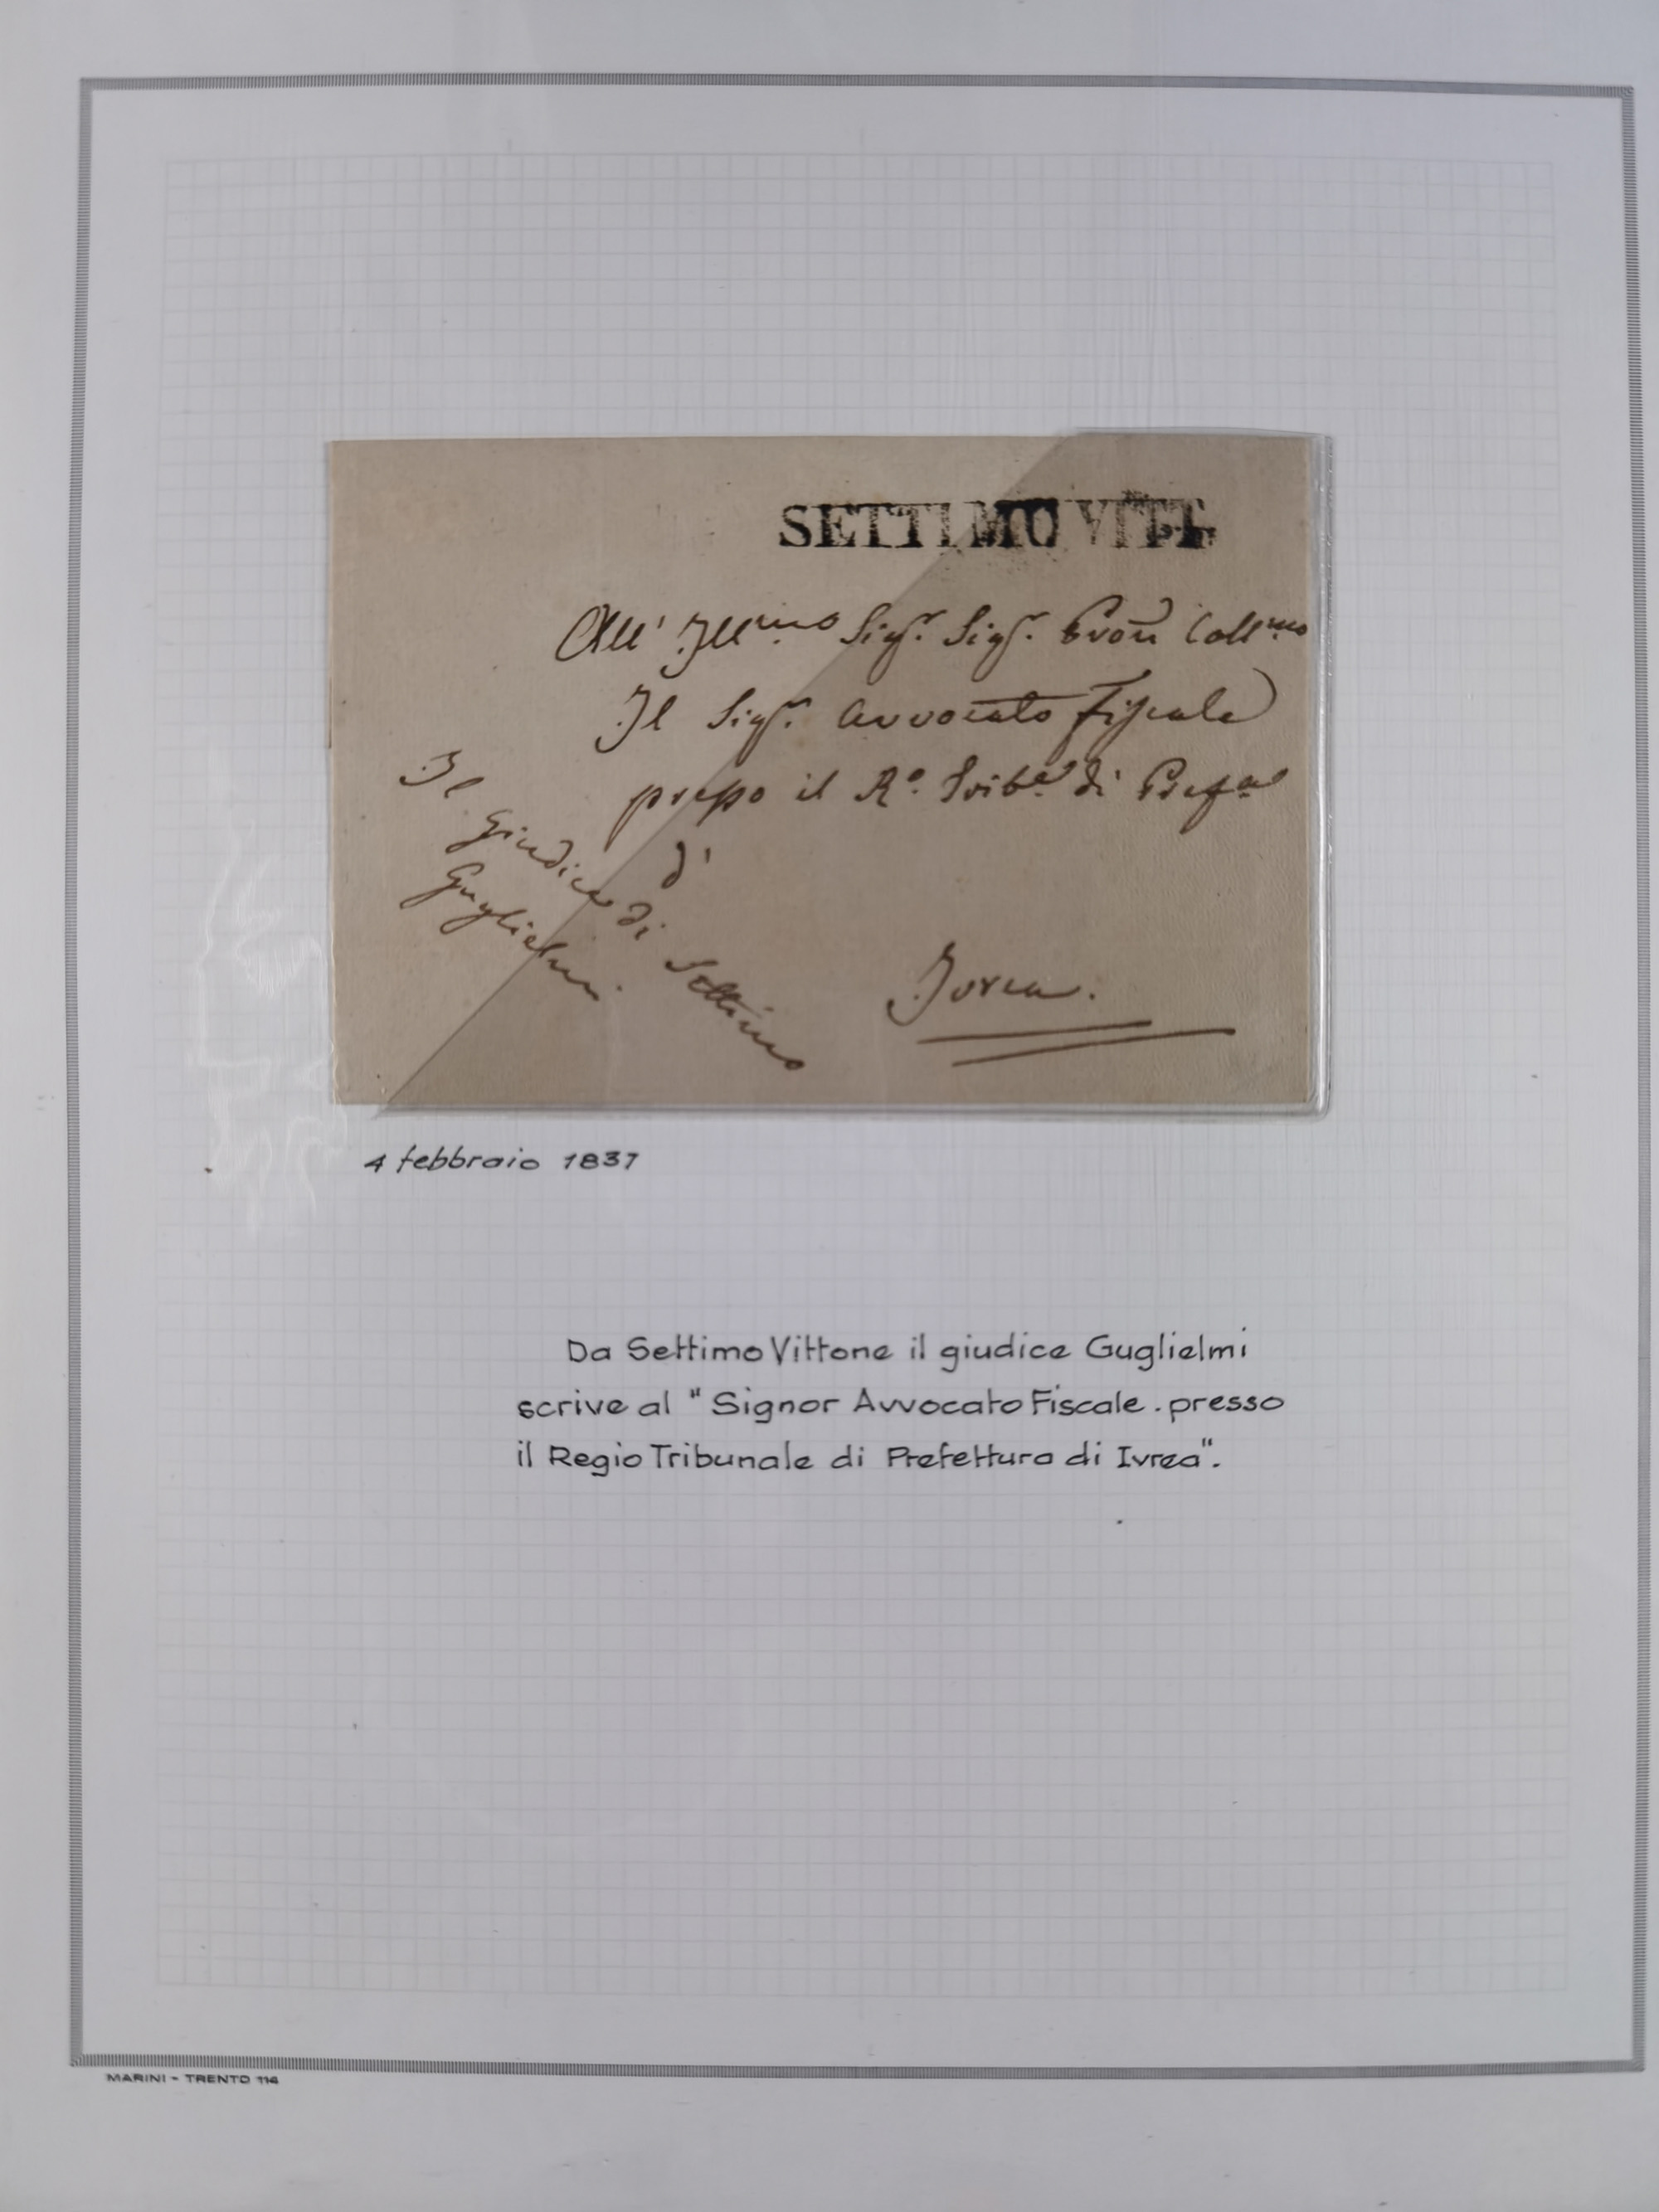 SETTIMO VITT.
All' Ill.mo Sigr. Sigr. Pron Coll.mo
Il Sigr. Avvocato Fiscale
presso il R.o Trib.e di Pref.a
di
Ivrea.
Il Giudice di Settimo
Guglielmi.
4 febbraio 1837
Da Settimo Vittone il giudice Guglielmi
scrive al "Signor Avvocato Fiscale . presso
il Regio Tribunale di Prefettura di Ivrea".
MARINI - TRENTO 114